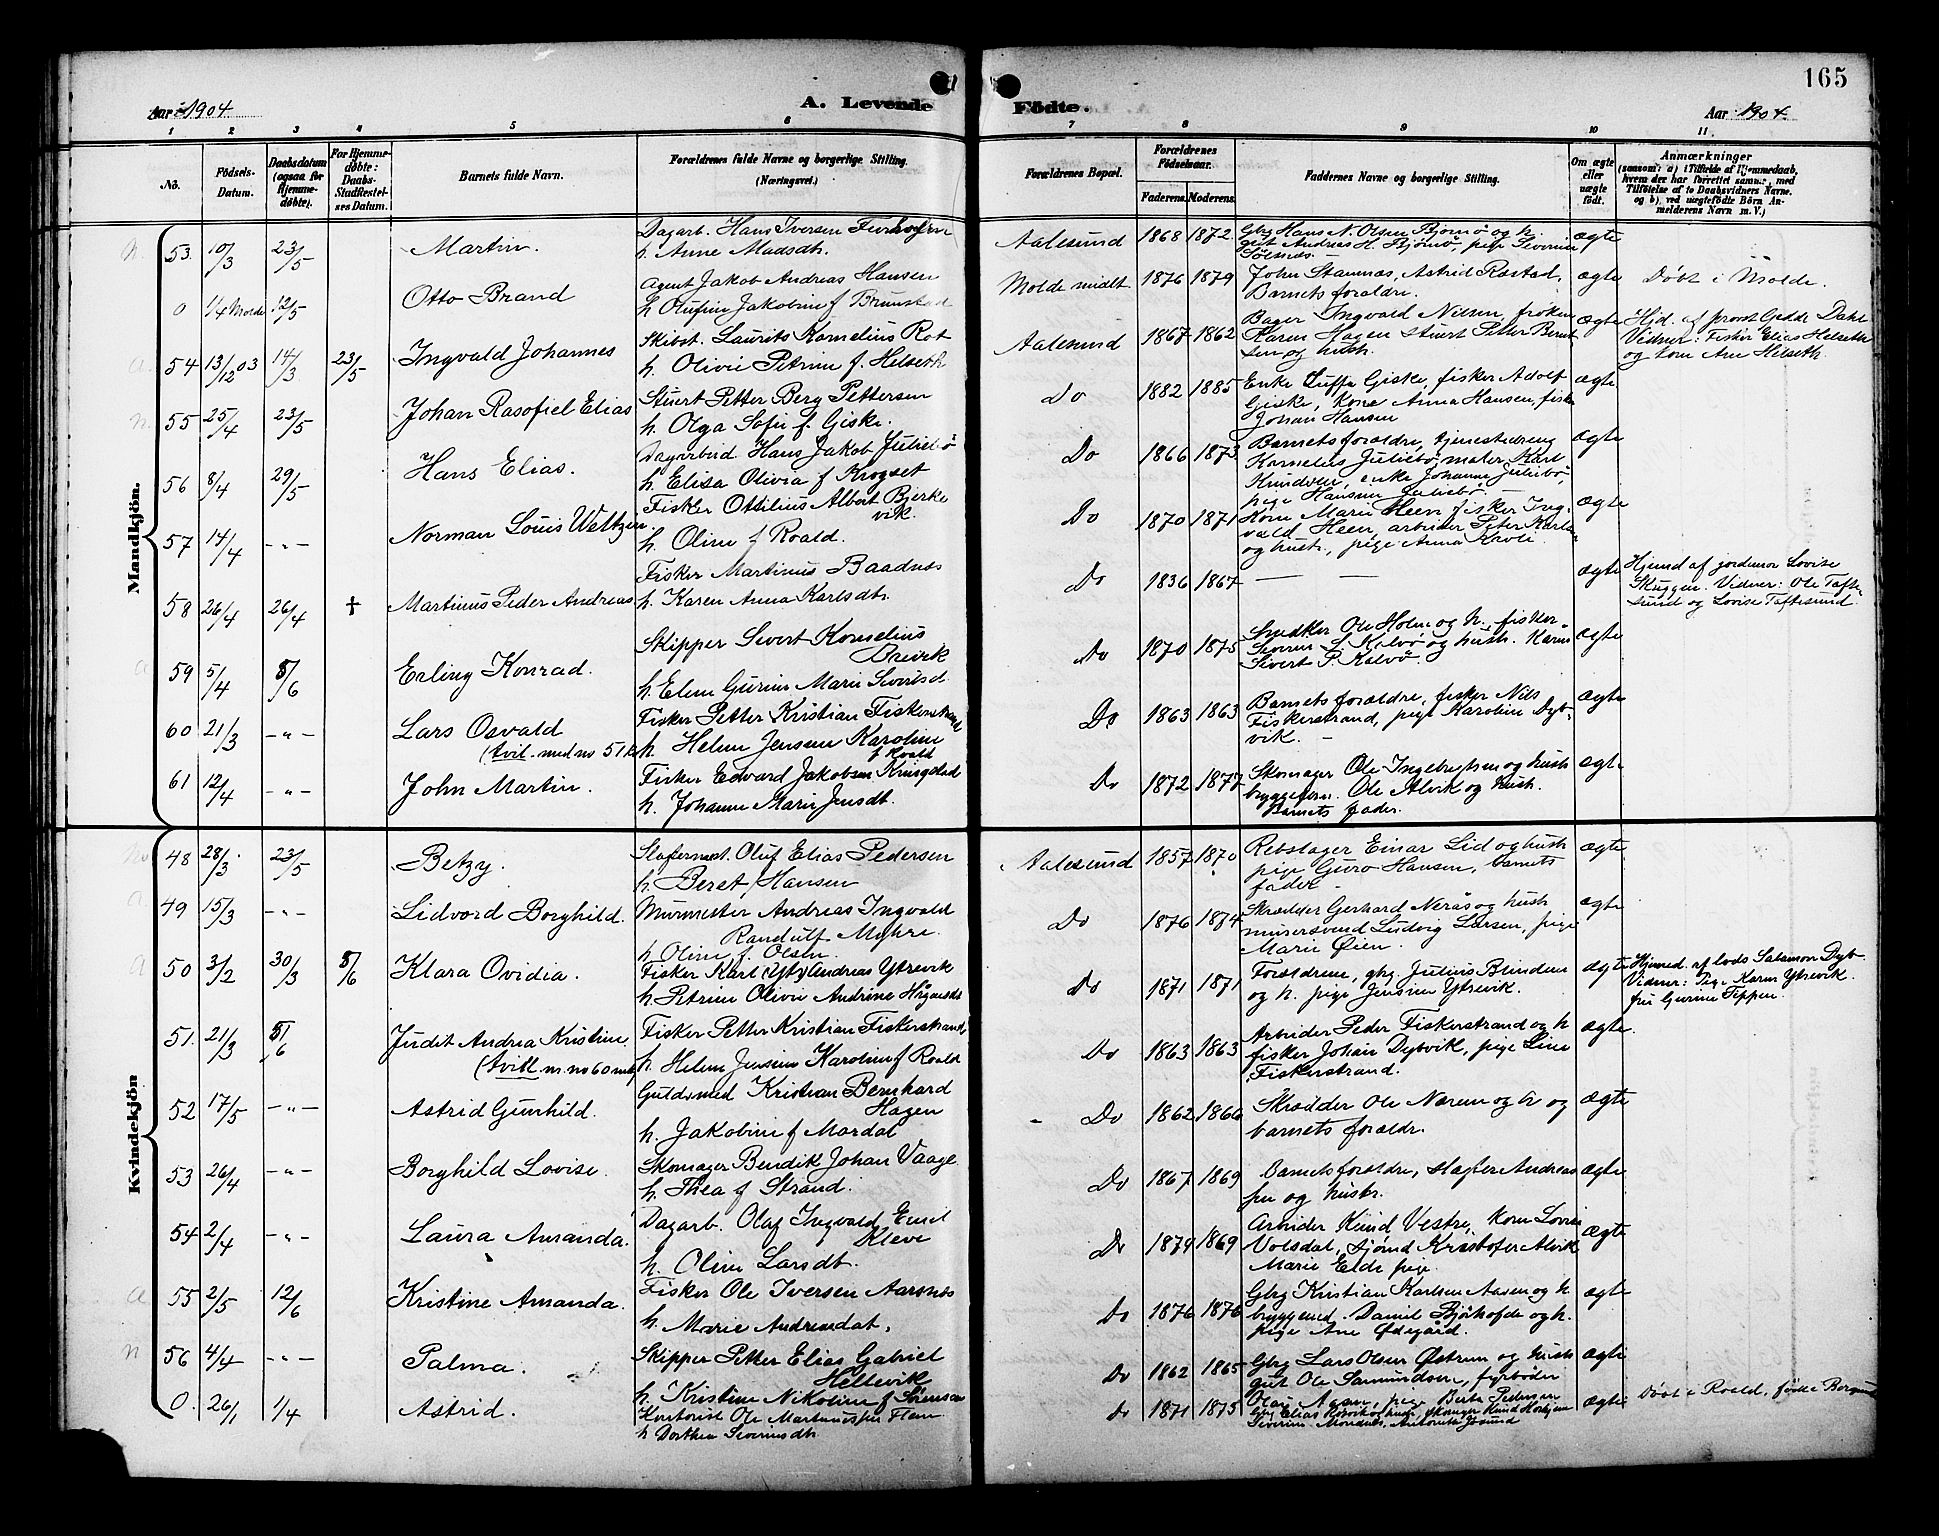 165
Aar 1904
A. Levende Födte.
Aar 1904.
1 2 3 4 5 6 7 8 9 10 11.
No.
Födsels-Datum.
Daabsdatum (ogsaa for Hjemme-döbte).
For Hjemme-döbte: Daabs-Stadfæstel-ses Datum.
Barnets fulde Navn.
Forældrenes fulde Navne og borgerlige Stilling. (Næringsvei.)
Forældrenes Bopæl.
Forældrenes Födselsaar.
Faderens. Moderens.
Faddernes Navne og borgerlige Stilling.
Om ægte eller uægte födt.
Anmærkninger
(saasom: a) i Tilfælde af Hjemmedaab, hvem der har forrettet samme, med Tilföielse af to Daabsvidners Navne. og b) ved uægtefödte Börn An-melderens Navn m. V.)
Mandkjön.
n. 53 10/3 23/5 Martin.
Dagarb. Hans Iversen
h. Anne Madsdtr.
Aalesund 1868 1872
Gbr Hans N. Olsen Bjørnø og h.
gut Andreas H. Bjørnø, pige Severine
Solnæs. ægte
0 1/4 Molde 12/5 Otto Brand
Agent Jakob Andreas Hansen
h Olufine Jakobine f Brunstad
Molde midlt 1876 1879
John Stamnæs, Astrid Røstad,
Barnets forældre. ægte
Døbt i Molde.
a. 54 13/12 03 14/3 23/5 Ingvald Johannes
Skibst. Laurits Kornelius Rot
h. Olivie Petrine f Helseth
Aalesund 1867 1862
Bager Ingvald Nilsen, frøken
Karen Hagen Stuert Petter Bernt
sen og hustr. ægte
Hjd. af provst Gedde Dahl
Vidner: Fisker Elias Helseth
og kone Ane Helseth.
n. 55 25/4 23/5 Johan Rasofiel Elias
Stuert Petter Berg Pettersen
h. Olga Sofie f. Giske.
Do 1882 1885
Enke Giske, fisker Adolf
Giske, Kone Anna Hansen, fisk
Johan Hansen ægte
56 8/4 29/5 Hans Elias.
Dagarbeid Hans Jakob Juliebø
h. Elisa Olivia f Krogset
Do 1866 1873
Barnets forældre, tjenestedreng
Kornelius Juliebø, maler Karl
enke Johanne Juliebø,
pige Hansine Juliebø. ægte
57 14/4 -„- Norman Louis Weltzin.
Fisker Ottilius Albert Bjerke
vik.
h. Oline f Roald.
Do 1870 1871
Kone Marie Heen, fisker Ing-
vald Heen, arbeider Peter Karls
og hustr, pige Anna ægte
58 26/4 26/4 † Martinus Peder Andreas
Fisker Martinus Baadnæs
h. Karen Anna Karlsdtr.
Do 1836 1867 — — ægte
Hjemd af jordemor Lovise
Skuggen. Vidner: Ole Tafte-
sund og Lovise Taftesund.
a 59 5/4 5/6 Erling Konrad.
Skipper Sivert Kornelius
Brevik
h. Elen Gurine Marie Sivertsd.
Do 1870 1875
Snedker Ole Holm og h., fisker
Severin S. Kalvø og hustr. Karen
Sivert P. Kalvø. ægte
60 21/3 -„- Lars Osvald
(tvil. med no 51 k)
Fisker Petter Kristian Fiskerstrand
h Helene Jensine Karoline
f Roald
Do 1863 1863
Barnets forældre, fisker Nils
Fiskerstrand, pige Karoline Dyb-
vik. — ægte
61 12/4 -„- John Martin.
Fisker Edvard Jakobsen Kringstad
h. Johanne Marie Jensdtr.
Do 1872 1877
Skomager Ole Ingebrigtsen og hustr
Ole Alvik og hustr.
Barnets fader. ægte
Kvindekjön
48 28/3 23/5 Betzy.
Oluf Elias Pedersen
h. Beret Hansen
Aalesund 1857 1870
Rebslager Einar Lid og hustr
pige Guro Hansen, barnets
fader ægte
a. 49 15/3 -„- Lidvord Borghild.
Murmester Andreas Ingvald
Randulf Myhre.
h. Oline f. Olsen.
Do 1876 1874
Skrædder Gerhard Nerås og hustr
murersvend Ludvig Larsen, pige
Marie Øien. ægte
a 50 3/2 30/3 5/6 Klara Ovidia.
Fisker Karl Andreas Ytrevik
h. Petrine Olivie Andrine
Do 1871 1871
Forældrene, gbr. Julius Blindem
og h. pige Jensine Ytrevik. ægte
Hjemd. af lods Salamon Dyb-
Vidner: Pige Karen Ytrevik
fru Gurine Tippen.
51. 21/3 5/6 Judit Andrea Kristine.
(tvill. m. no 60 mk)
Fisker Petter Kristian Fiskerstrand
h. Helene Jensine Karoline f Roald
Do 1863 1863
Arbeider Peder Fiskerstrand og h
fisker Johan Dybvik, pige Line
Fiskerstrand. ægte.
52 17/5 -„- Astrid Gunhild.
Guldsmed Kristian Bernhard
Hagen
h. Jakobine f Mardal
Do 1862 1866
Skrædder Ole Nærem og h og
barnets forældr. ægte
53 26/4 -„- Borghild Lovise.
Skomager Bendik Johan Vaage
h. Thea f Strand.
Do 1867 1869
Barnets forældre, Andreas
og hustr. ægte
54 2/4 -„- Laura Amanda.
Dagarb. Olaf Ingvald Emil
Kleve
h. Oline Larsdtr.
Do 1879 1869
Arbeider Knud Vestre, Kone Lovise
Volsdal, sjømd Kristofer Alvik
Marie Elde pige. ægte
a 55 2/5 12/6 Kristine Amanda.
Fisker Ole Iversen Aarsnes
h. Marie Andreasdat.
Do 1876 1876
Gbr Kristian Karlsen Aasen og h
Daniel og h.
pige Ane Ødegård. ægte
n 56 4/4 -„- Palma.
Skipper Petter Elias Gabriel
Hellevik
h. Kristine Nikoline f Sørensen
Do 1862 1865
Gbr Lars Olsen Østrem og hustr
gut Ole Samundsen, fyrbøder ægte
0. 26/1 1/4 Astrid.
Kontorist Ole Martinussen Flem
h Dorthea Severinsdtr
Do 1871 1875
pige Berta Pedersen
ægte
Døbt i Roald, fødte Borgund